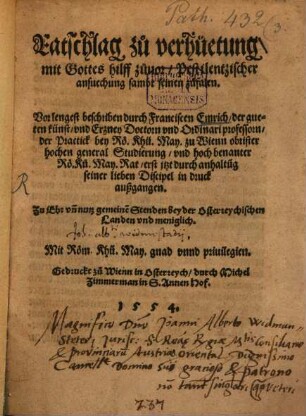 Path. 432/3
Ratschlag zů verhüetung
mit Gottes hilff zůuor, Pestilentzischer
ansuchung sampt seinen zůfälen.
MONACENSIS.
Vor lengest beschriben durch Franciscen Emrich, der gue-
ten künst, vnd Ertzney Doctorn vnd Ordinari professorn,
der Practick bey Rö. Khü. May. zu Wienn obrister
hochen general Studierung, vnd hoch benanter
Rö. Kü. May. Rat, erst jtzt durch anhaltũg
seiner lieben Discipel in druck
außgangen.
Zu Ehr vñ nutz gemeinẽ Stenden bey der Osterreychischen
Landen vnd meniglich.
Joh. Alb.
Mit Röm. Khü. May. gnad vnnd priuilegien.
Gedruckt zů Wienn in Osterreych, durch Michel
Zimmerman in S. Annen Hof.
1554.
Magnifico Dño Joanni Alberto Widman
Stetter, Juriscō. S. Reg. Mtis Consiliario
et provinciarum Austriae oriental. Dignissimo
Cancellario Domino suo gratioso et patrono
737